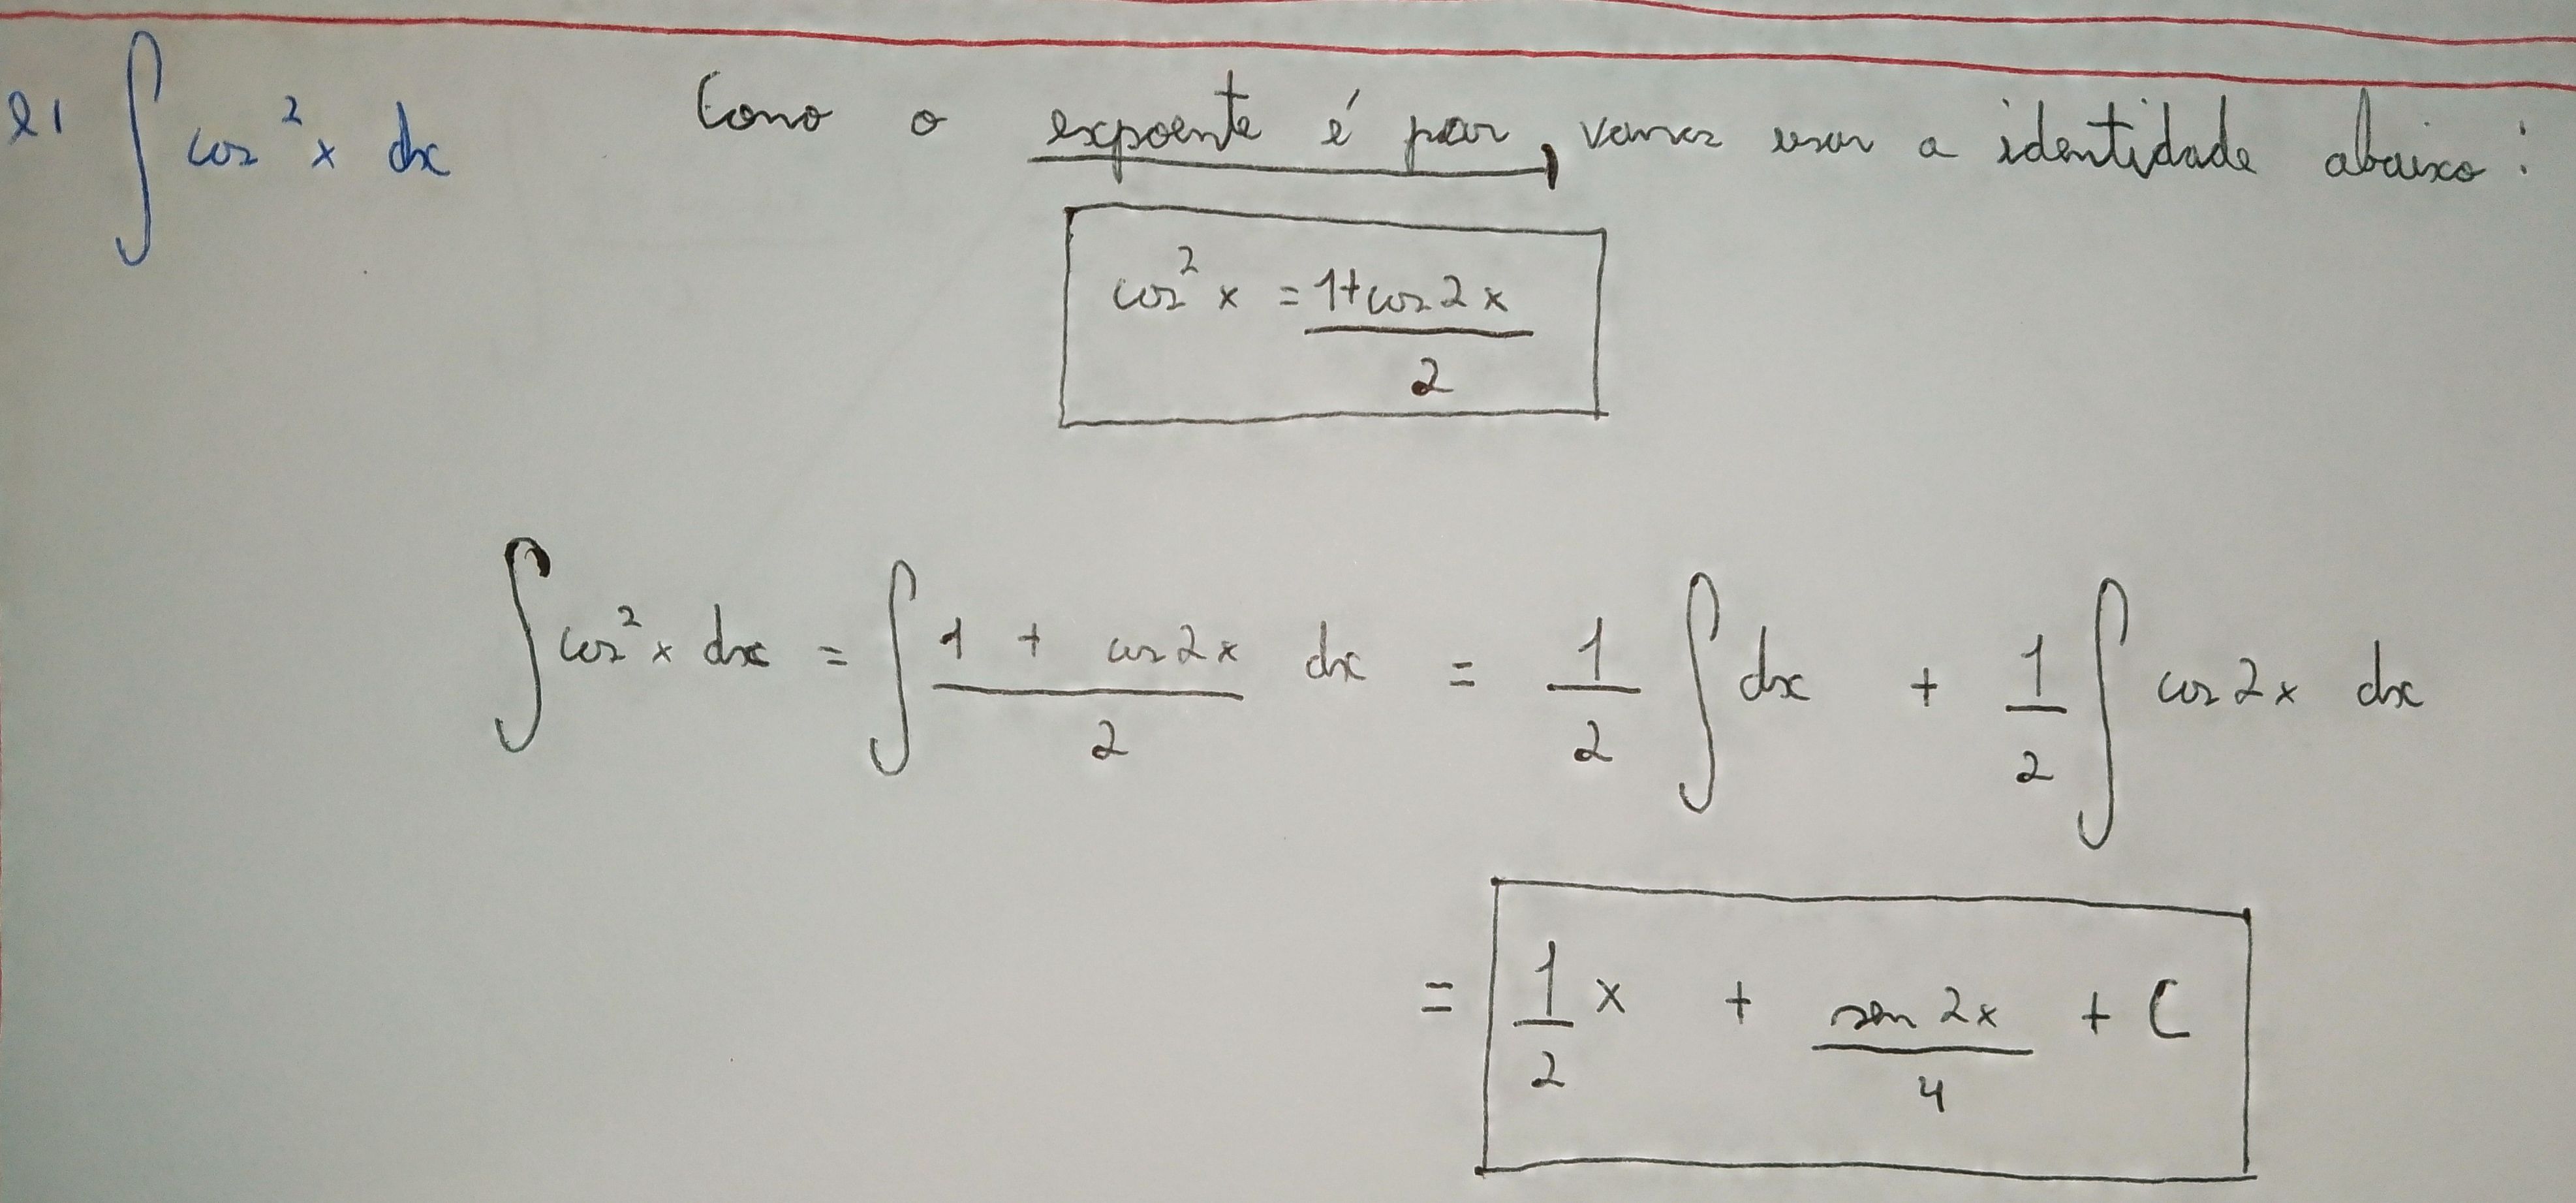 e) ∫ cos² x dx Como o expoente é par, vamos usar a identidade abaixo:
cos² x = (1+cos 2x)/2
∫ cos² x dx = ∫ (1 + cos 2x)/2 dx = 1/2 ∫ dx + 1/2 ∫ cos 2x dx
= 1/2 x + sen 2x/4 + C